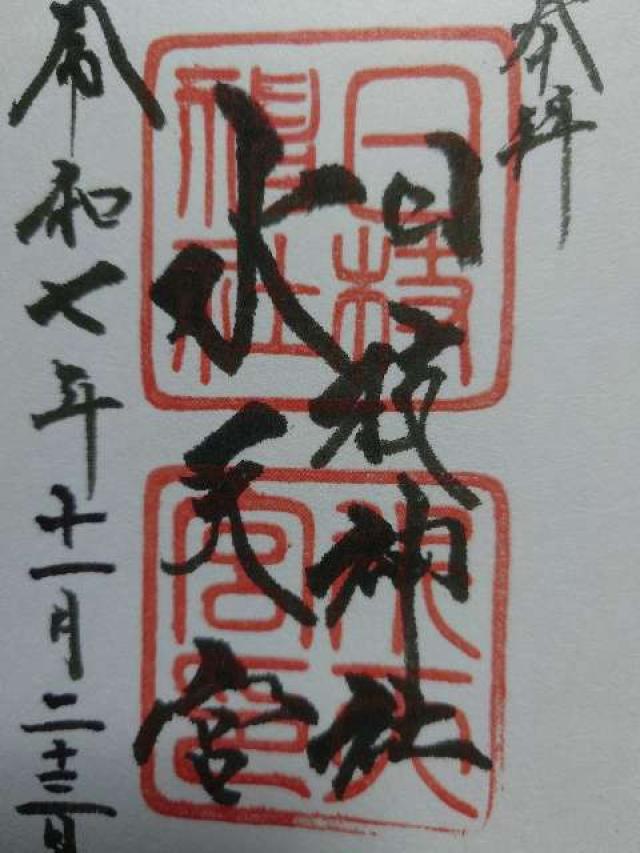 奉拝
日枝神社
水天宮
令和七年十一月二十三日
日枝神社
水天宮